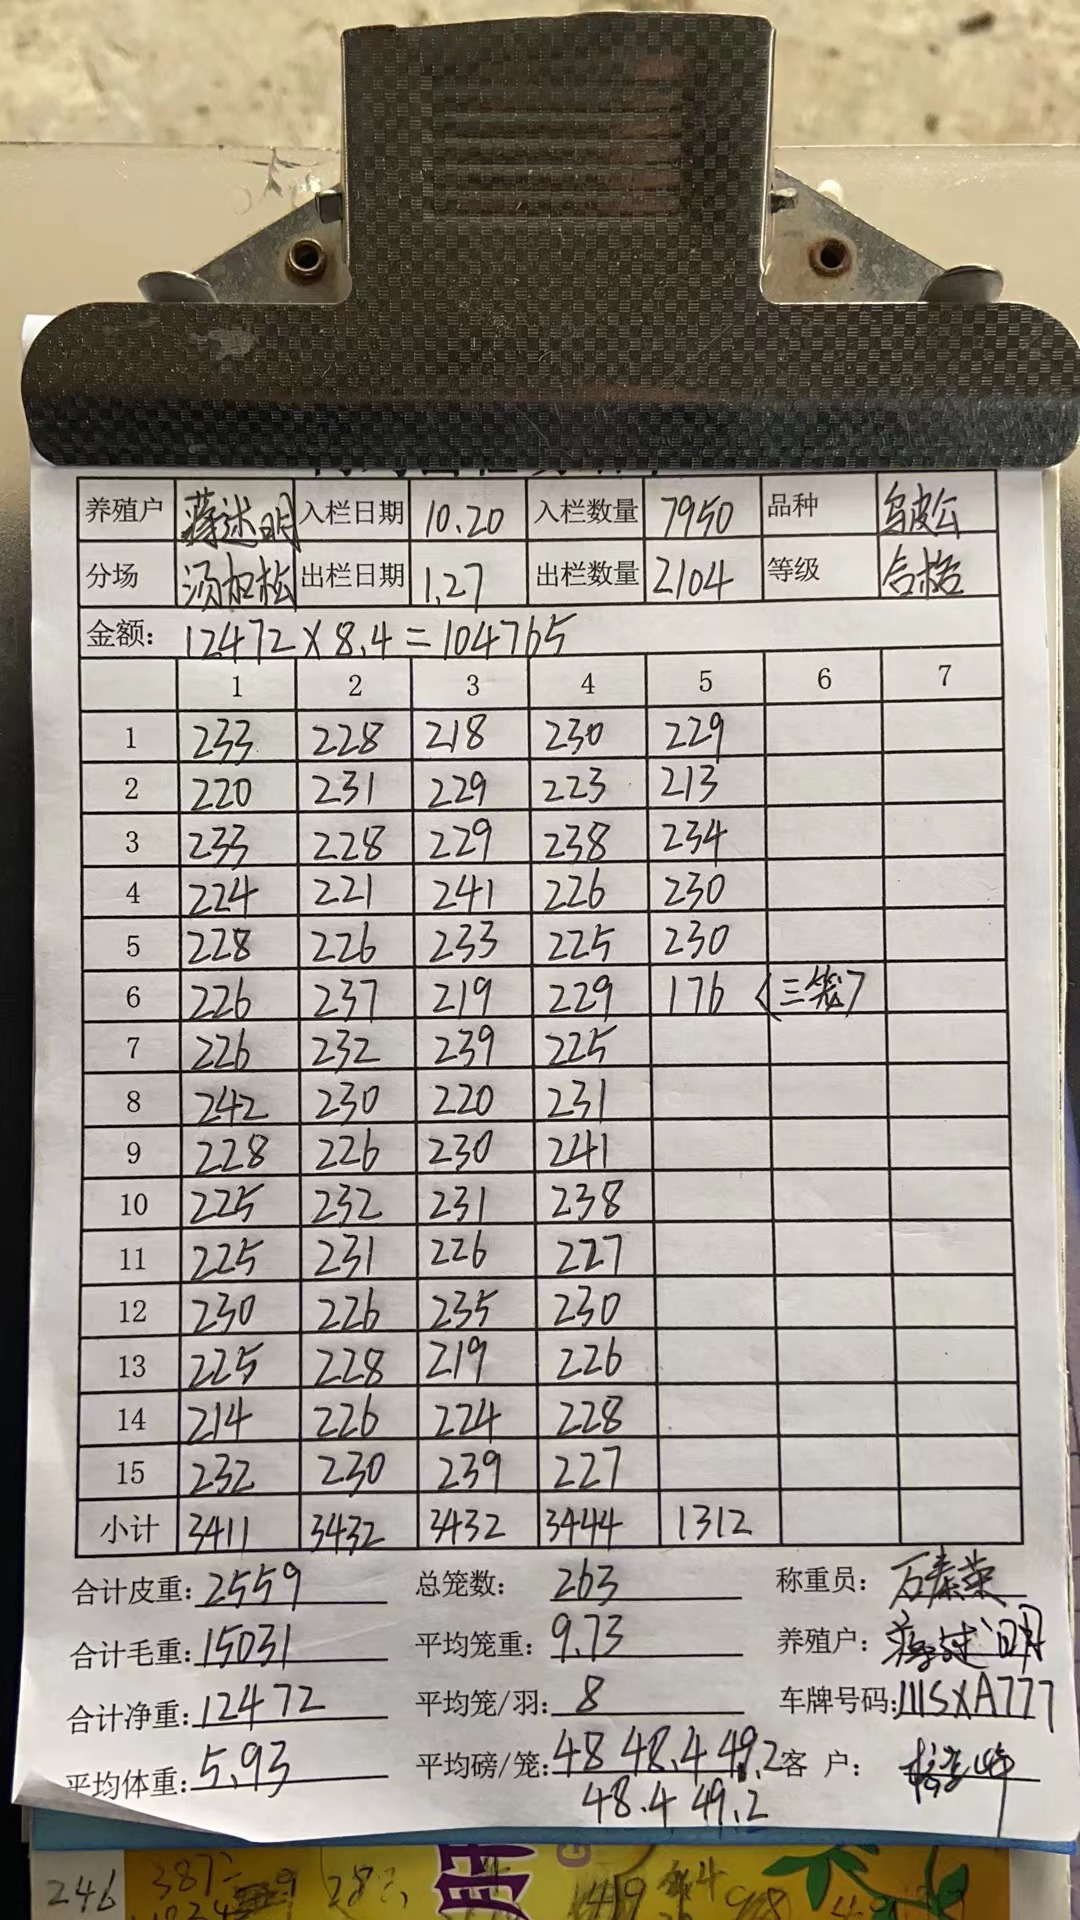 养殖户 蒋述明 入栏日期 10.20 入栏数量 7950 品种 乌皮公
分场 须加松 出栏日期 1.27 出栏数量 2104 等级 合格
金额: 12472×8.4=104765
1 2 3 4 5 6 7
1 233 228 218 230 229
2 220 231 229 223 213
3 233 228 229 238 234
4 224 221 241 226 230
5 228 226 233 225 230
6 226 237 219 229 176 (三笼)
7 226 232 239 225
8 242 230 220 231
9 228 226 230 241
10 225 232 231 238
11 225 231 226 227
12 230 226 235 230
13 225 228 219 226
14 214 226 224 228
15 232 230 239 227
小计 3411 3432 3432 3444 1312
合计皮重: 2559 总笼数: 263 称重员:
合计毛重: 15031 平均笼重: 9.73 养殖户: 蒋述明
合计净重: 12472 平均笼/羽: 8 车牌号码:
平均体重: 5.93 平均磅/笼: 48 48.4 49.2 客 户:
48.4 49.2
246